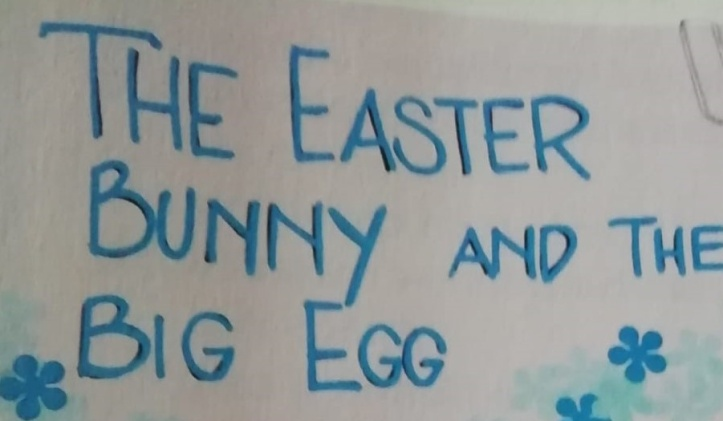 THE EASTER
BUNNY AND THE
BIG EGG